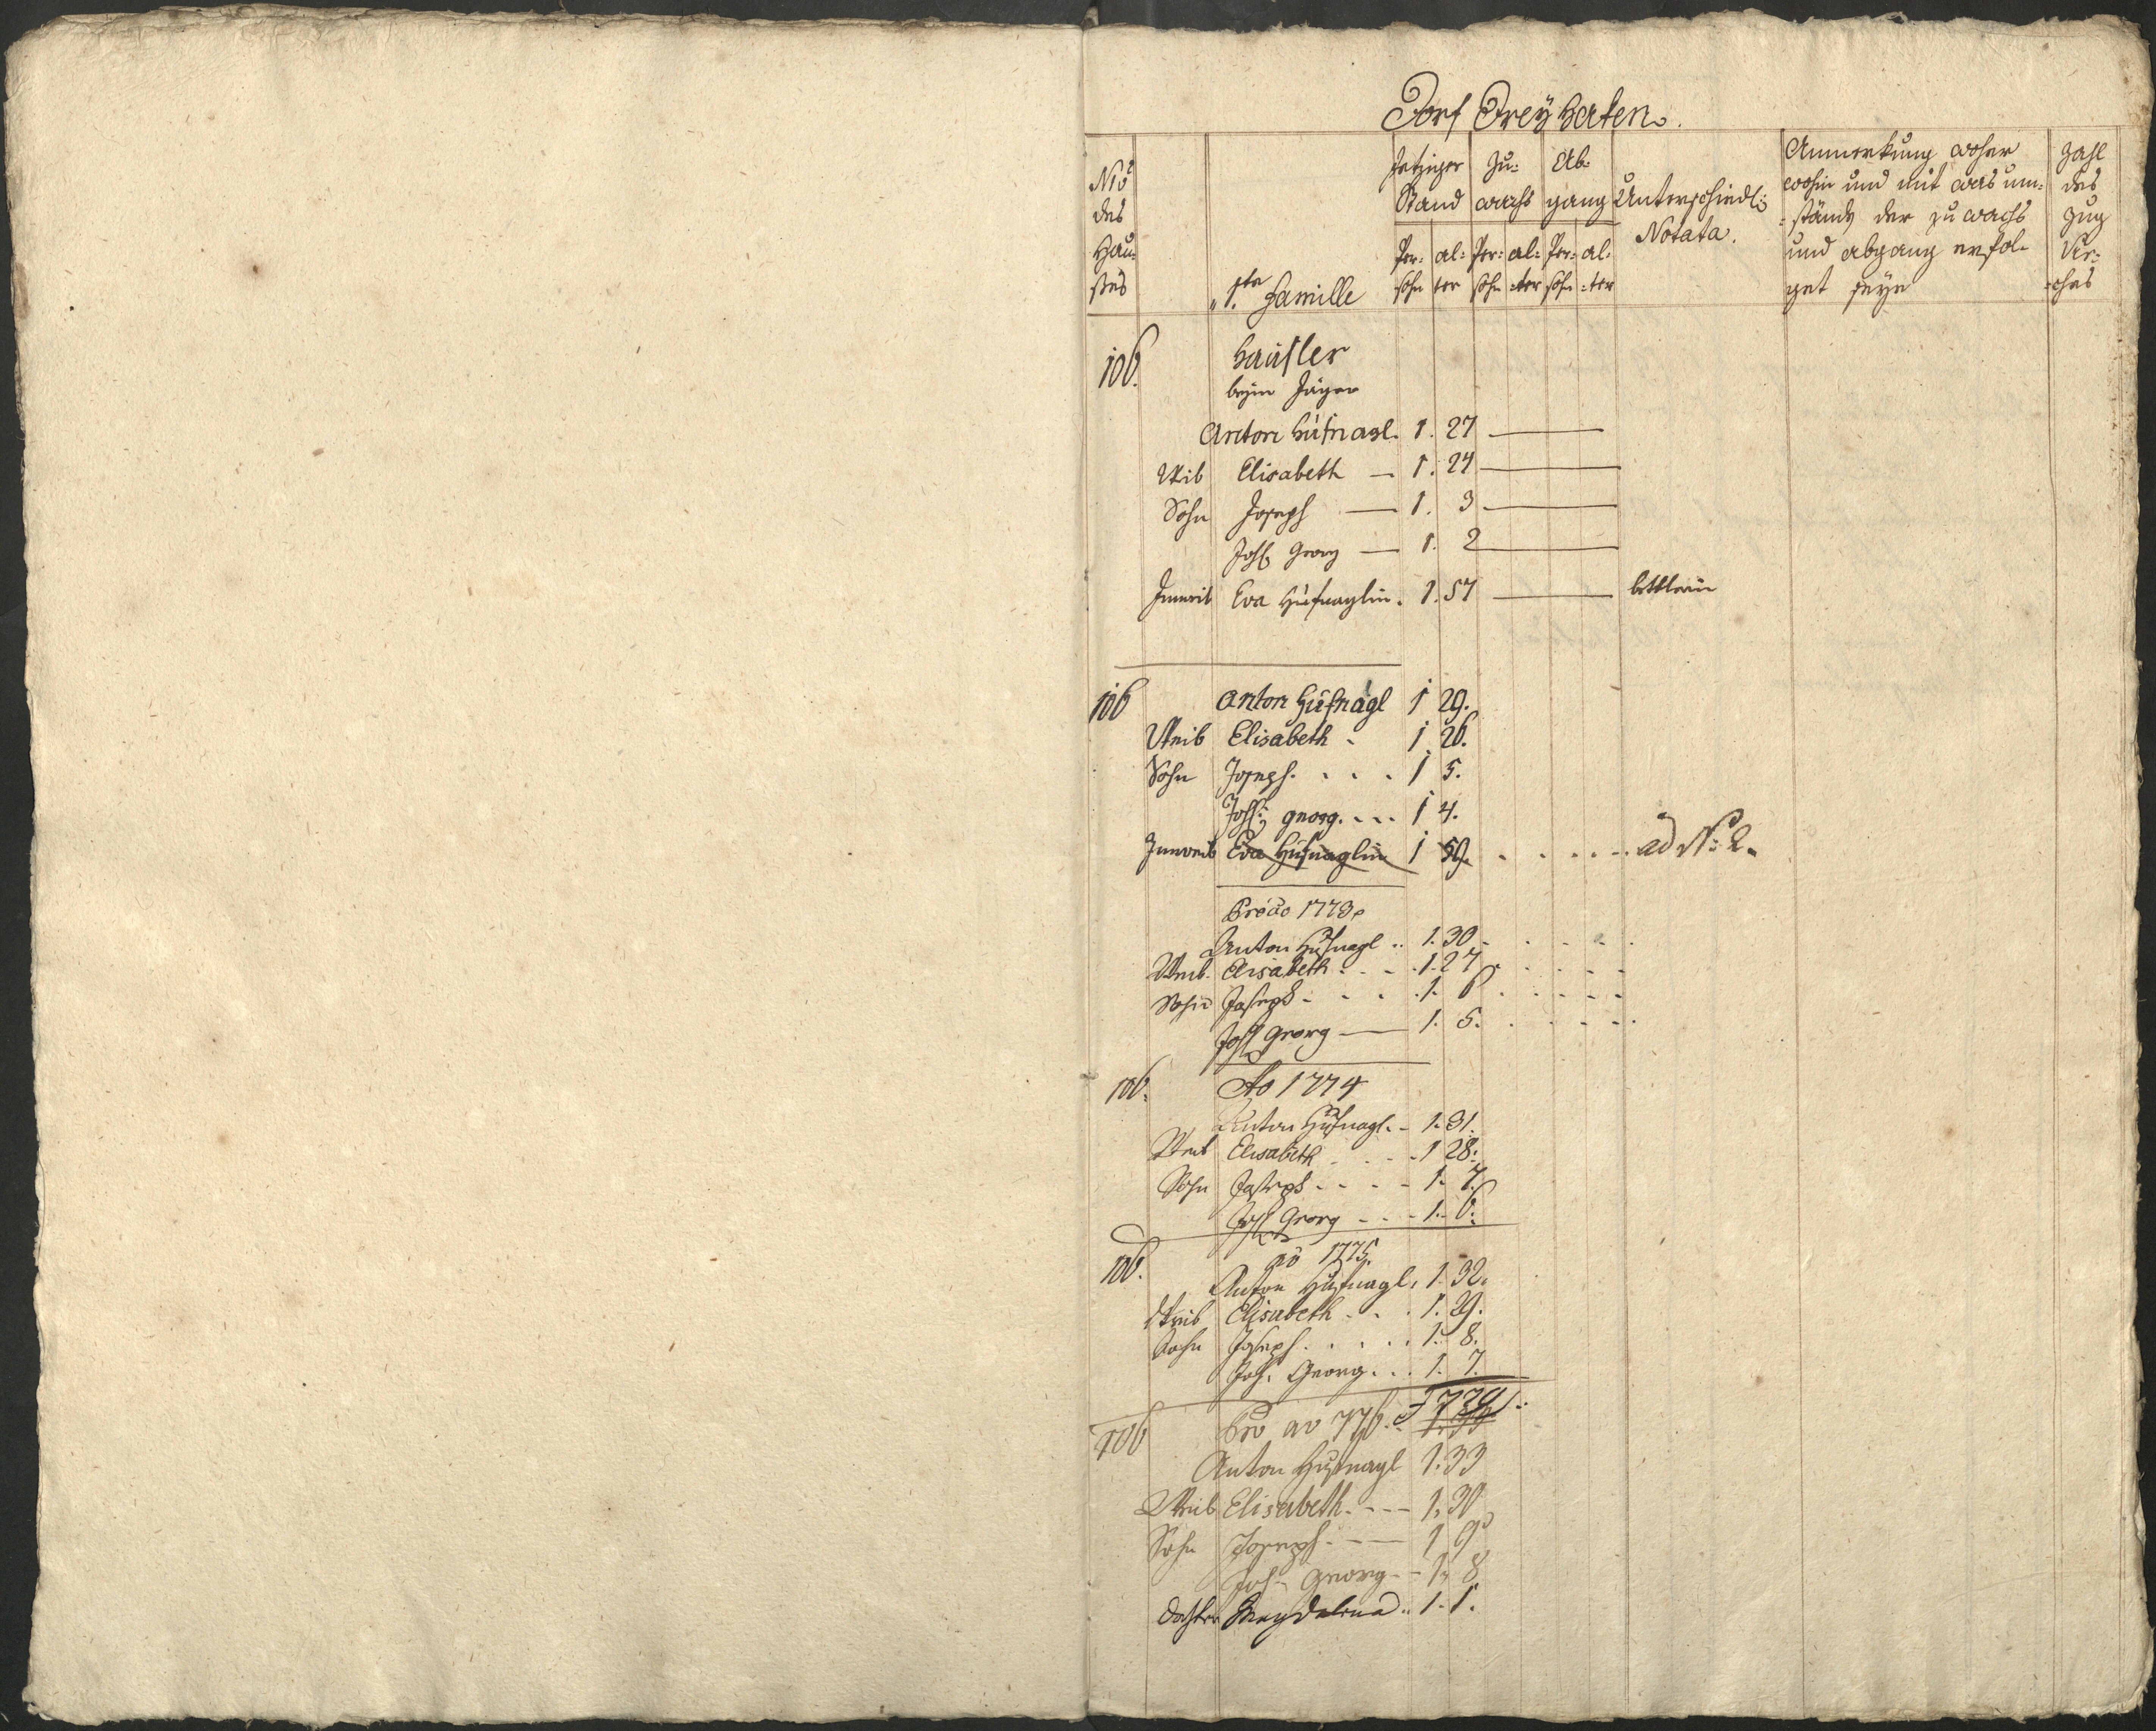 Dorf Dreyhaken.
Nro des Hauses
1te Familie
Jetziger Stand
Persohn alter
Zuwachs
Persohn alter
Abgang
Persohn alter
Unterschiedl: Notata.
Anmerkung woher
wohin und mit was um=
=stände der zuwachs
und abgang erfol=
get seye
Zahl des Zug Vie=ches
106. Haüsler
beym Jäger
Anton Hüfnagl. 1. 27
Weib Elisabeth — 1. 24
Sohn Joseph — 1. 3
Joh Georg — 1. 2
Innweib Eva Hüfnaglin. 1. 57 bettlerin
106 Anton Hüfnagl 1 29.
Weib Elisabeth 1 26.
Sohn Joseph. . . . 1 5.
Joh: georg. . . . 1 4.
Innweib Eva Hüfnaglin 1 59. . . . . ad No: 2.
Pro ao 1773
Anton Hüfnagl .. 1. 30
Weib. Elisabeth . . . 1. 27
Sohn Joseph . . . 1. 6
Joh Georg — 1. 5.
106. Ao 1774
Anton Hüfnagl. - 1. 31.
Weib Elisabeth . . . 1 28.
Sohn Joseph . . . 1. 7.
Joh Georg - - - 1. 6.
106. ao 1775
Anton Hüfnagl. 1. 32.
Weib Elisabeth . . . 1. 29.
Sohn Joseph . . . . 1. 8.
Joh. Georg. . . 1. 7.
106 Pro ao 776. 779
Anton Hüfnagl 1. 33
Weib Elisabeth. - - - 1. 30
Sohn Joseph - - - 1 9
Joh: Georg - - 1. 8
Dochter Magdalena .. 1. 1.